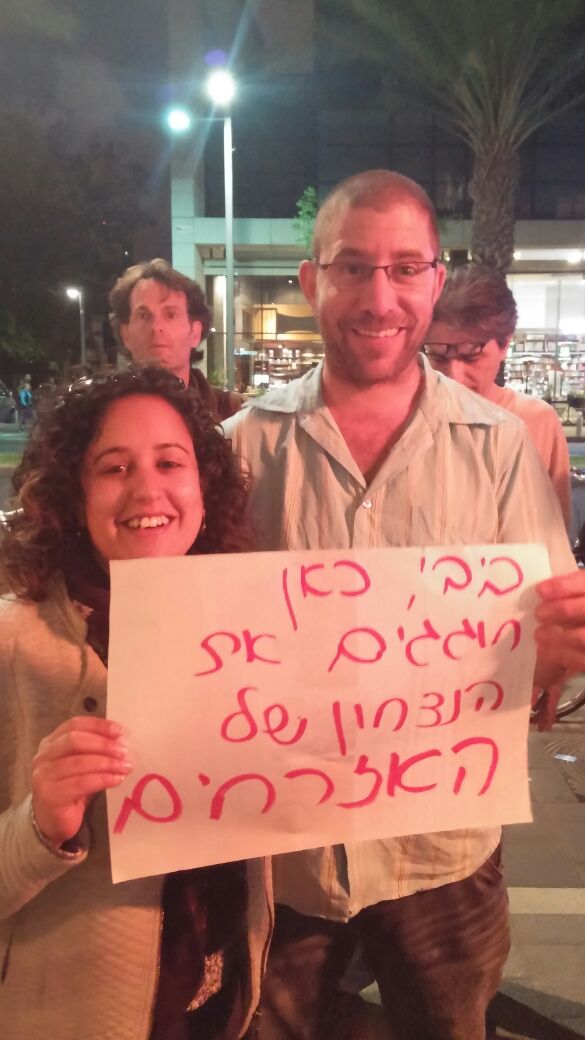 ביבי, כאן
חוגגים את
הנצחון של
האזרחים